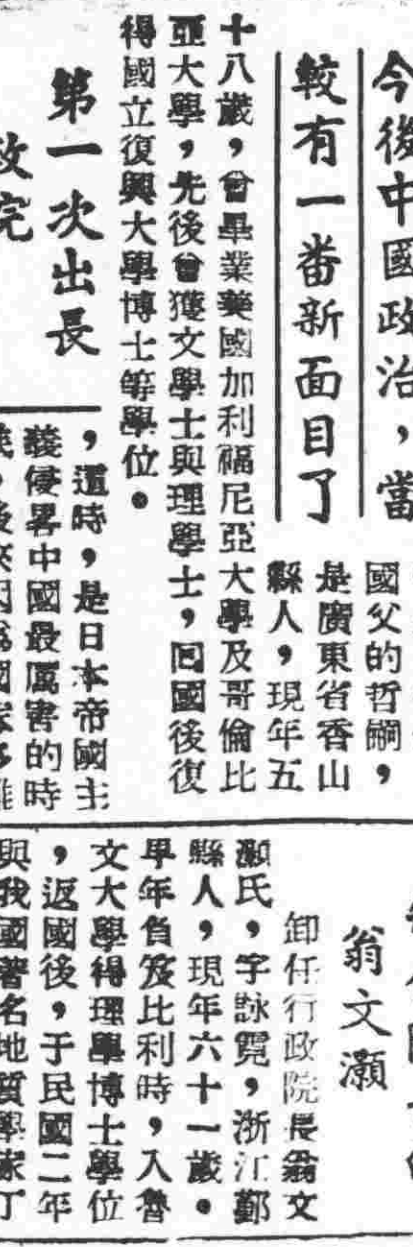 今後中國政治，當
較有一番新面目了
國父的哲嗣，
是廣東省香山
縣人，現年五
十八歲，曾畢業美國加利福尼亞大學及哥倫比
亞大學，先後曾獲文學士與理學士，回國後復
得國立復興大學博士等學位。
第一次出長
政院
，這時，是日本帝國主
義侵畧中國最厲害的時
翁文灝
卸任行政院長翁文
灝氏，字詠霓，浙江鄞
縣人，現年六十一歲。
早年負笈比利時，入魯
文大學得理學博士學位
，返國後，于民國二年
與我國著名地質學家丁